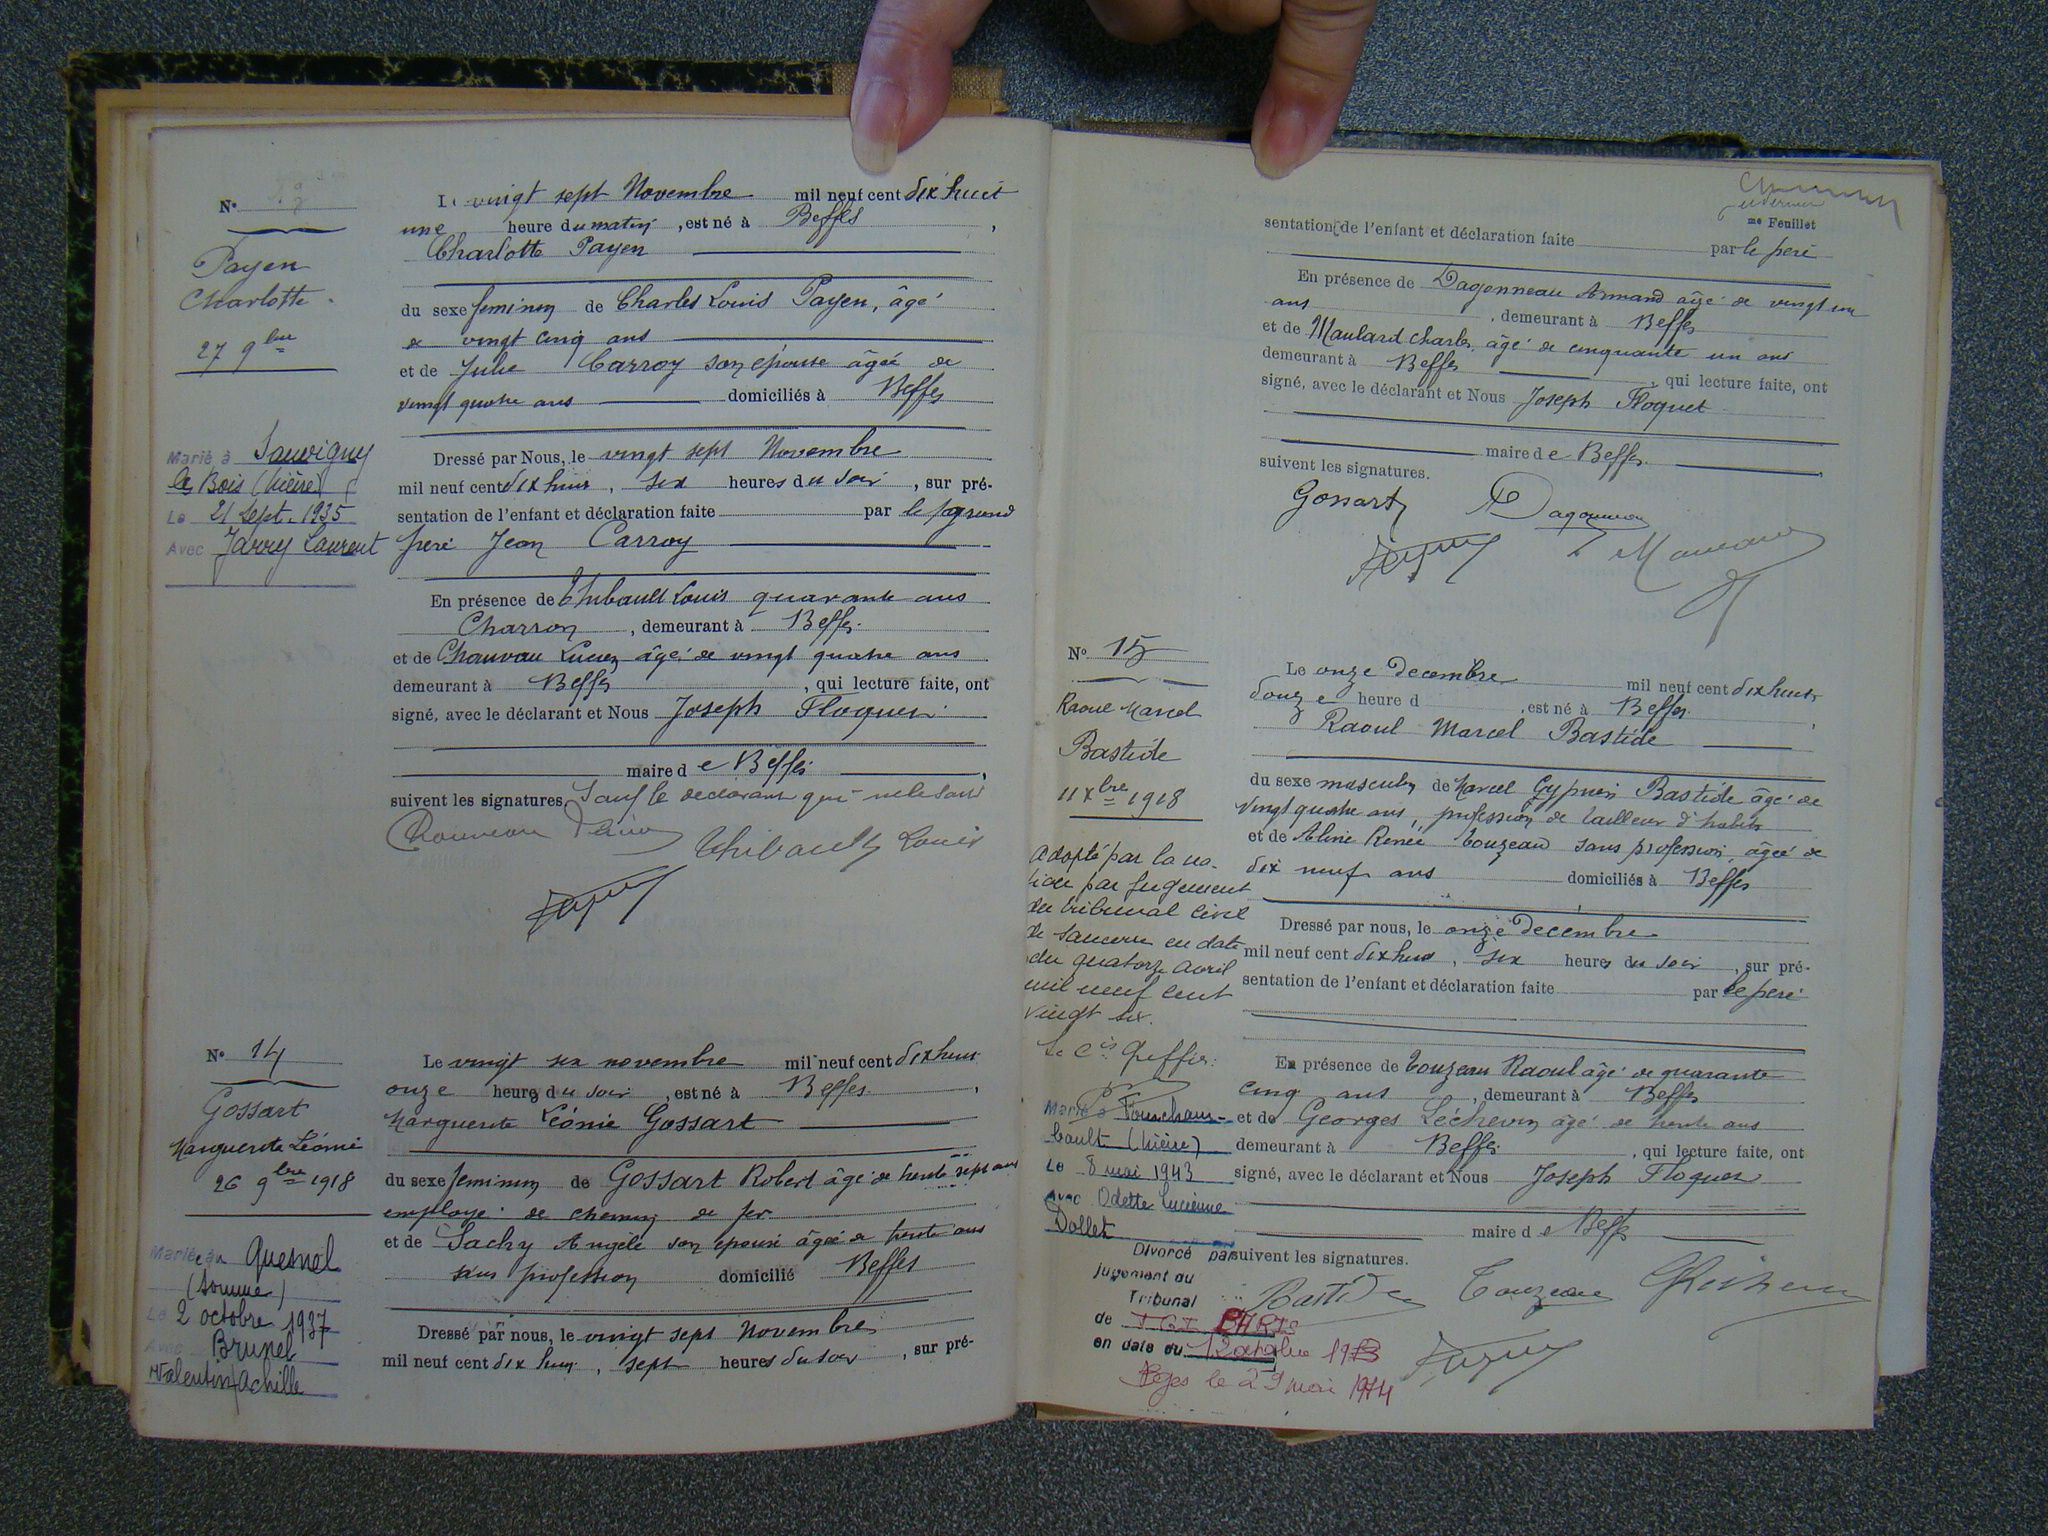 N°
Payen
Charlotte
27 9bre
Marié à Sauvigny
les Bois (Nièvre)
Le 21 Sept. 1935
Avec Jarry Laurent
Le vingt sept Novembre mil neuf cent dix huit
une heure du matin, est né à Beffes,
Charlotte Payen
du sexe feminin de Charles Louis Payen, âgé
de vingt cinq ans
et de Julie Carroy son épouse âgée de
vingt quatre ans domiciliés à Beffes
Dressé par Nous, le vingt sept Novembre
mil neuf cent dix huit, six heures du soir, sur pré-
sentation de l'enfant et déclaration faite par le grand
père Jean Carroy
En présence de Thibault Louis quarante ans
Charron, demeurant à Beffes
et de Chauveau Lucien âgé de vingt quatre ans
demeurant à Beffes, qui lecture faite, ont
signé, avec le déclarant et Nous Joseph Floquet
maire de Beffes,
suivent les signatures. Sauf le déclarant qui ne le sait
Chauveau Thibault Louis
N° 14
Gossart
Marguerite Léonie
26 9bre 1918
Mariée à Quesnel
(Somme)
Le 2 octobre 1937
Avec Brunel
Valentin Achille
Le vingt six novembre mil neuf cent dix huit
onze heures du soir, est né à Beffes,
Marguerite Léonie Gossart
du sexe feminin de Gossart Robert âgé de trente sept ans
employé de chemin de fer
et de Sachy Angèle son épouse âgée de trente ans
sans profession domicilié Beffes
Dressé par nous, le vingt sept Novembre
mil neuf cent dix huit, sept heures du soir, sur pré-
me Feuillet
sentation de l'enfant et déclaration faite par le père
En présence de Dagonneau Armand âgé de vingt un
ans, demeurant à Beffes
et de Maulard Charles, âgé de cinquante un ans
demeurant à Beffes, qui lecture faite, ont
signé, avec le déclarant et Nous Joseph Floquet
maire de Beffes,
suivent les signatures.
Gossart Dagonneau
N° 15
Raoul Marcel
Bastide
11 Xbre 1918
Adopté par la na-
tion par jugement
du tribunal civil
de Sancerre en date
du quatorze avril
mil neuf cent
vingt six.
Le cis Greffier:
Marié à Fourcham-
bault (Nièvre)
Le 8 mai 1943
Avec Odette Lucienne
Dollet
Divorcé par
jugement du
Tribunal
de TGI PARIS
en date du
le 29 mai 1974
Le onze décembre mil neuf cent dix huit
douze heure d, est né à Beffes,
Raoul Marcel Bastide
du sexe masculin de Marcel Bastide âgé de
vingt quatre ans, profession de tailleur d'habits
et de Aline Renée Touzeau sans profession, âgée de
dix neuf ans domiciliés à Beffes
Dressé par nous, le onze décembre
mil neuf cent dix huit, six heures du soir, sur pré-
sentation de l'enfant et déclaration faite par le père
En présence de Touzeau Raoul âgé de quarante
cinq ans, demeurant à Beffes
et de Georges Léchevin âgé de trente ans
demeurant à Beffes, qui lecture faite, ont
signé, avec le déclarant et Nous Joseph Floquet
maire de Beffes
suivent les signatures.
Bastide Touzeau